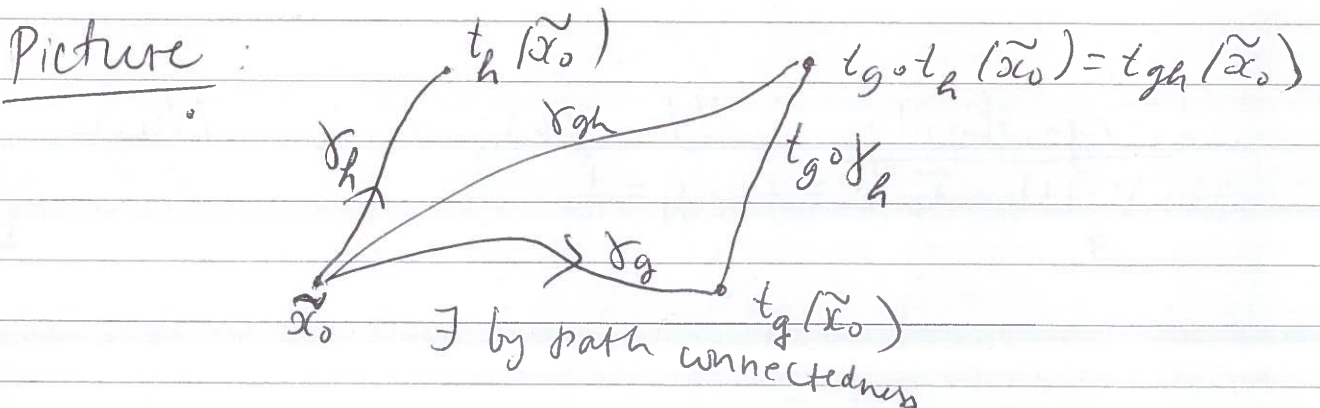 Picture :
t_h (x̃₀)
t_g ∘ t_h (x̃₀) = t_gh (x̃₀)
γ_gh
γ_h
t_g ∘ γ_h
γ_g
x̃₀
t_g (x̃₀)
∃ by path connectedness